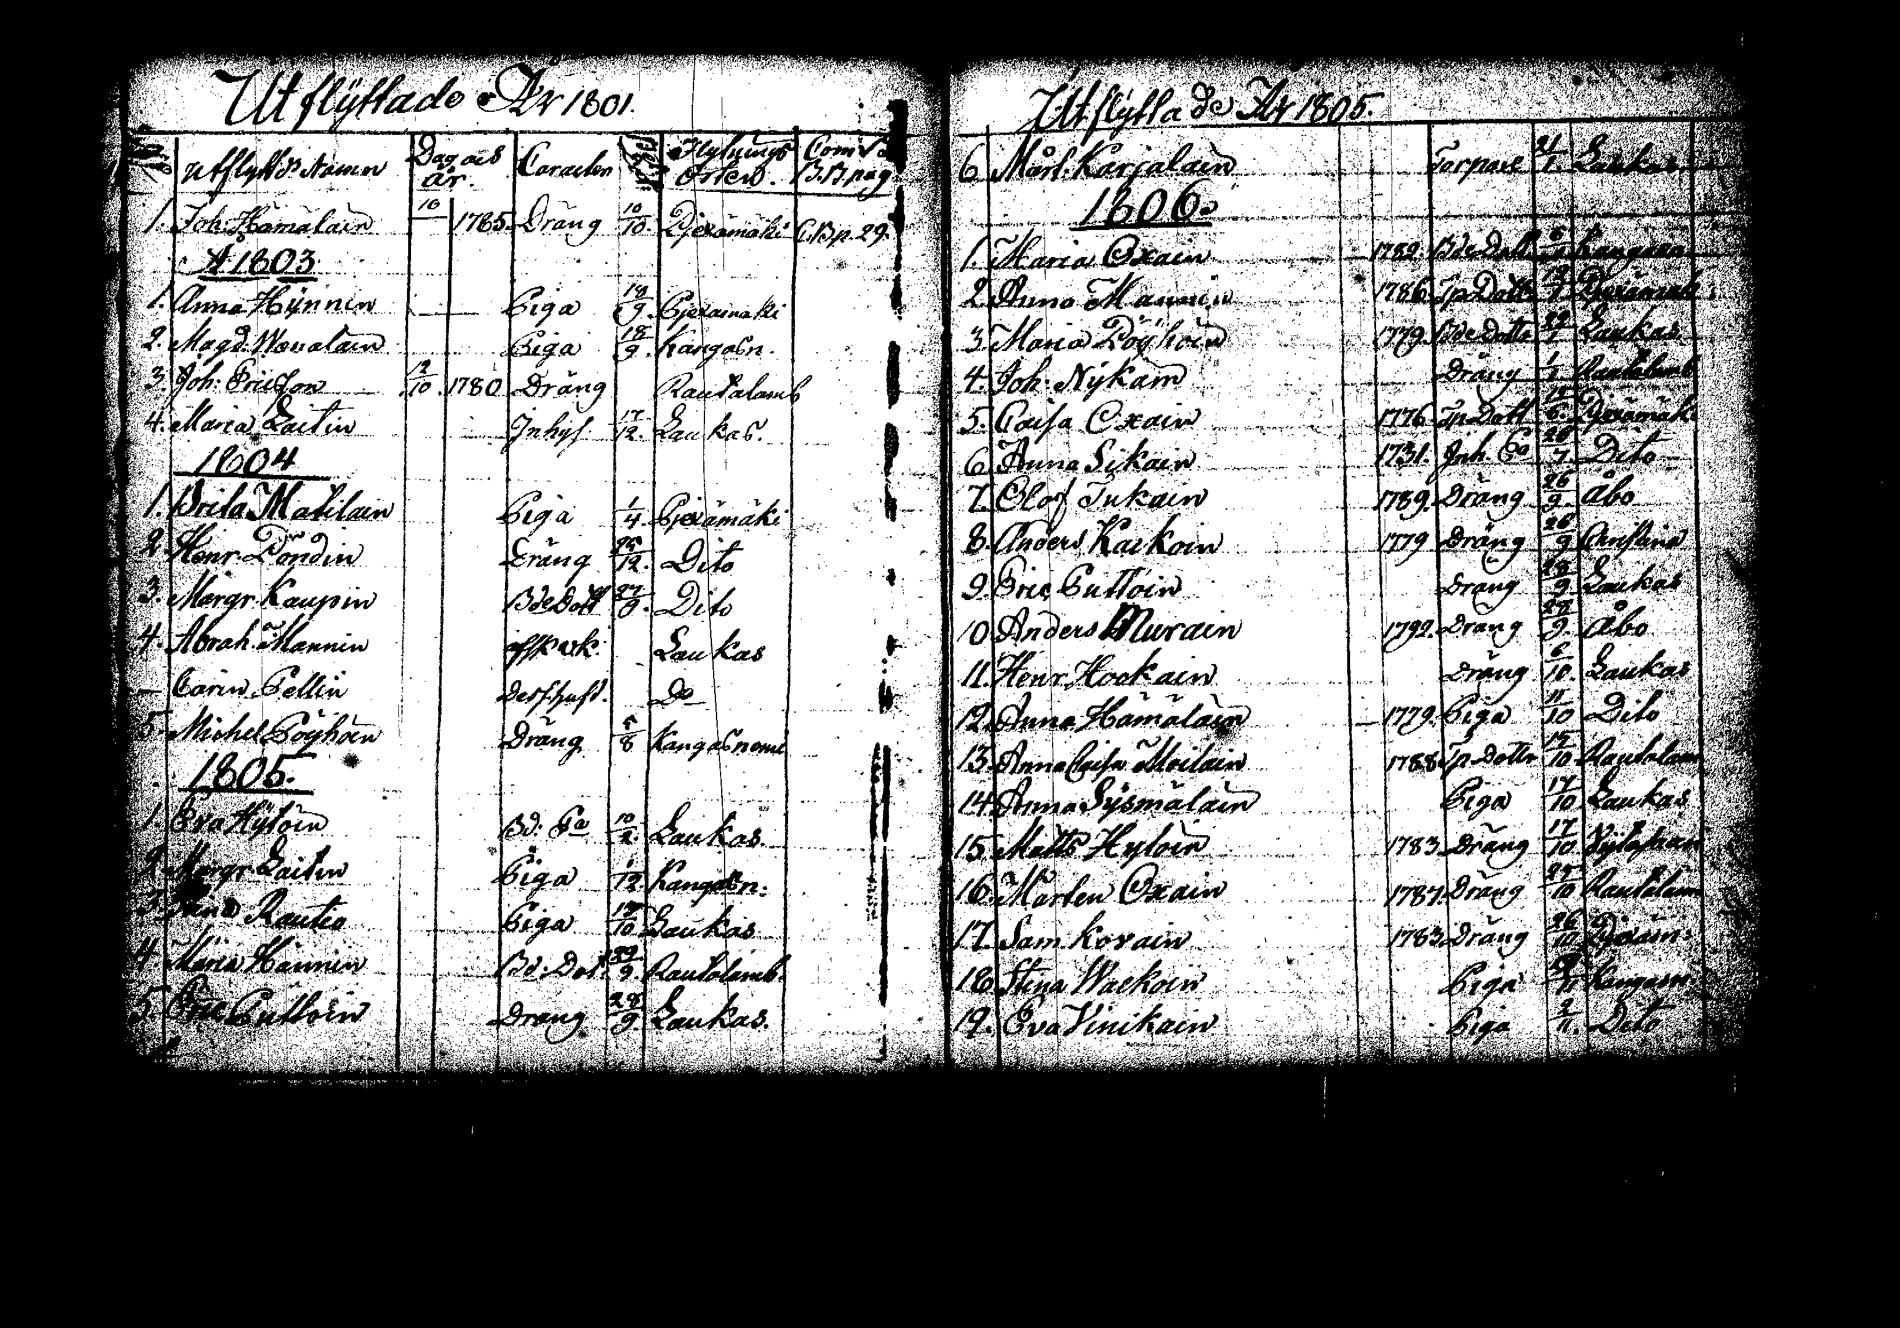 Utflÿttade År 1801.
utflytt: Namn Dag och år. Caracter Flytnings Orten. Com: B.B. pag.
1. Joh: Hämäläin 10 1785 Dräng 10/10. Pjexämäki C.B.p. 29.
A 1803
1. Anna Hÿnnin Piga 18/9. Pjexämäki
2. Magd. Wovalain Piga 18/9. Kangasn.
3. Joh: Ericsson 12/10. 1780 Dräng Rautalamb
4. Maria Laitin Inhys 17/12. Laukas.
1804
1. Brita Matilain Piga 1/4. Pjexämäki
2. Henr. Pöndin Dräng 26/12. Dito
3. Margr. Kaupin Bde Dott 27/9. Dito
4. Abrah. Mannin Laukas
— Carin Pellin Do
5. Michel Pöyhöin Dräng 5/8 Kangasnemi
1805.
1. Eva Hÿtöin Bd: 10/2. Laukas.
2. Margr. Laitin Piga 1/12. Kangasn:
3. Rautio Piga 10 Laukas
4. Maria Hännin Bd: Dot. 9. Rautalamb.
5. Eric Puttoin Dräng 28/9. Laukas.
Utflÿttade År 1805.
6 Mårt. Karjalain Torpare 21/1. Laukas
1806.
1. Maria Oxain 1782. Bde Dott. Kangasn
2. Anna Mannin 1786 Tp Dott Pjexämäki
3. Maria Pöÿhöin 1779. Bde Dottr Laukas
4. Joh: Nÿkäin Dräng Rautalamb
5. Caisa Oxain 1776 Tp Dott Pjexämäk
6. Anna Sikain 1731. Inh. 20/7 Dito
7. Olof Tukain 1789. Dräng 26/9. Åbo
8. Anders Kaikoin 1779 Dräng 26/9 Christina
9. Eric Puttoin Dräng 28/9. Laukas
10 Anders Murain 1792. Dräng 28/9. Åbo
11. Henr. Hockain Dräng 6/10. Laukas
12. Anna Hämäläin 1779. Piga 11/10 Dito
13. Anna Caisa Moilain 1788 Tp. Dottr 10 Rautalam
14. Anna Sÿsmäläin Piga 17/10 Laukas
15. Matts Hytöin 1783 Dräng 17/10
16. Mårten Oxain 1787. Dräng 10 Rautalam
17. Sam. Korain 1783 Dräng 26/10 Pjexäm.
18. Stina Waekoin Piga 11 Kangasn
19. Eva Vinikain Piga 2/11. Dito